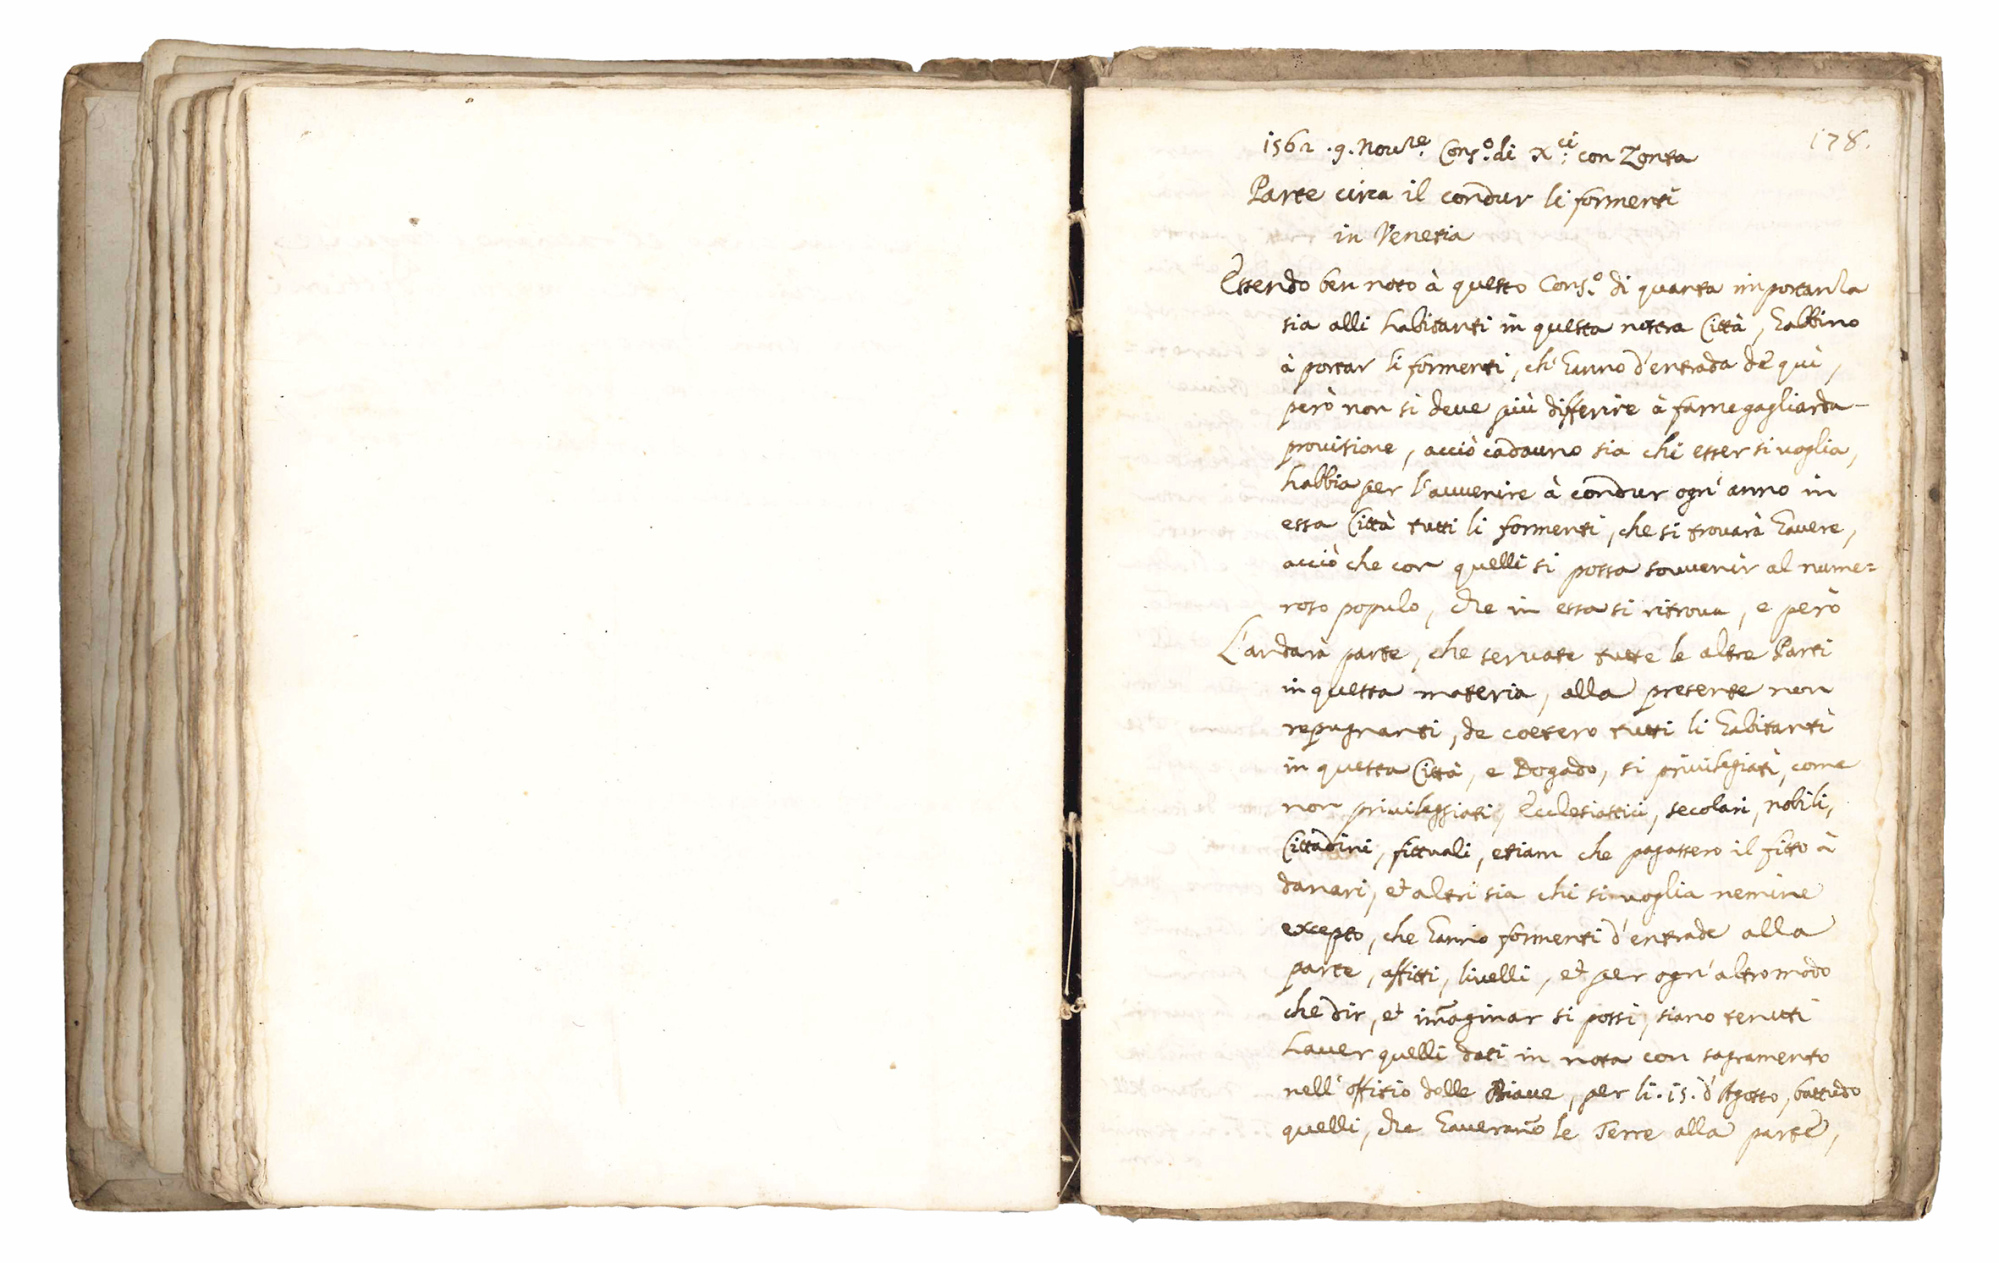 178.
1562 .9. Nou.re Cons.o di X.ci con Zonta
Parte circa il condur li formenti
in Venetia
Essendo ben noto à questo Cons.o di quanta importanza
sia alli habitanti in questa nostra Città, habbino
à portar li formenti, ch'hanno d'entrada de quì,
però non si deue più differire à farne gagliarda
prouisione, acciò cadauno sia chi esser si uoglia,
habbia per l'auuenire à condur ogn'anno in
essa Città tutti li formenti, che si trouarà hauere,
acciò che con quelli si possa souuenir al nume=
roso populo, che in essa si ritroua, e però
L'andarà parte, che seruate tutte le altre Parti
in questa materia, alla presente non
repugnanti, de coetero tutti li habitanti
in questa Città, e Dogado, si priuilegiati, come
non priuileggiati, Ecclesiastici, secolari, nobili,
Cittadini, fittuali, etiam che pagassero il fitto à
danari, et altri sia chi si uoglia nemine
excepto, che hanno formenti d'entrade alla
parte, affitti, liuelli, et per ogn'altro modo
che dir, et immaginar si possi, siano tenuti
hauer quelli dati in nota con sagramento
nell'offitio delle Biaue, per li .15. d'Agosto, battudo
quelli, che haueranno le Terre alla parte,